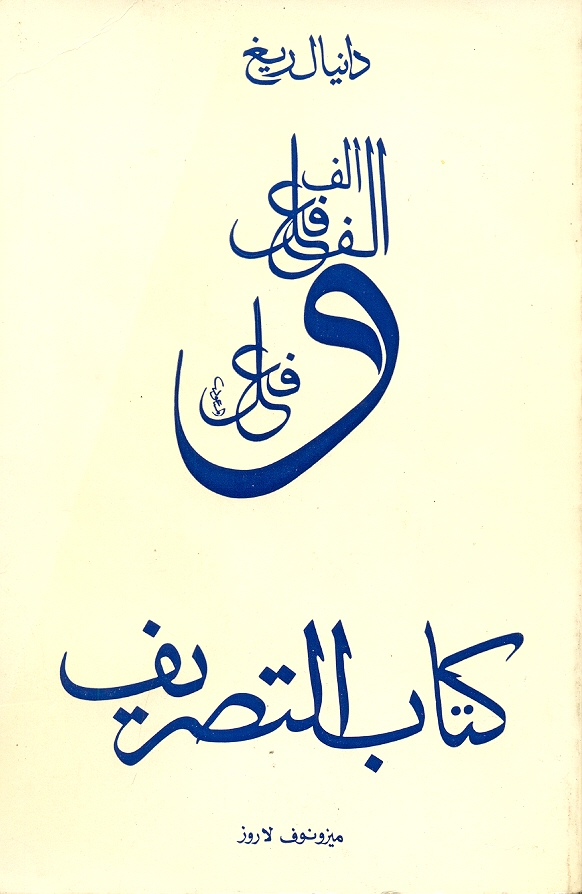 دانيال ريغ
الف
الف فعل
و
فعل
كتاب التصريف
ميزونوف لاروز